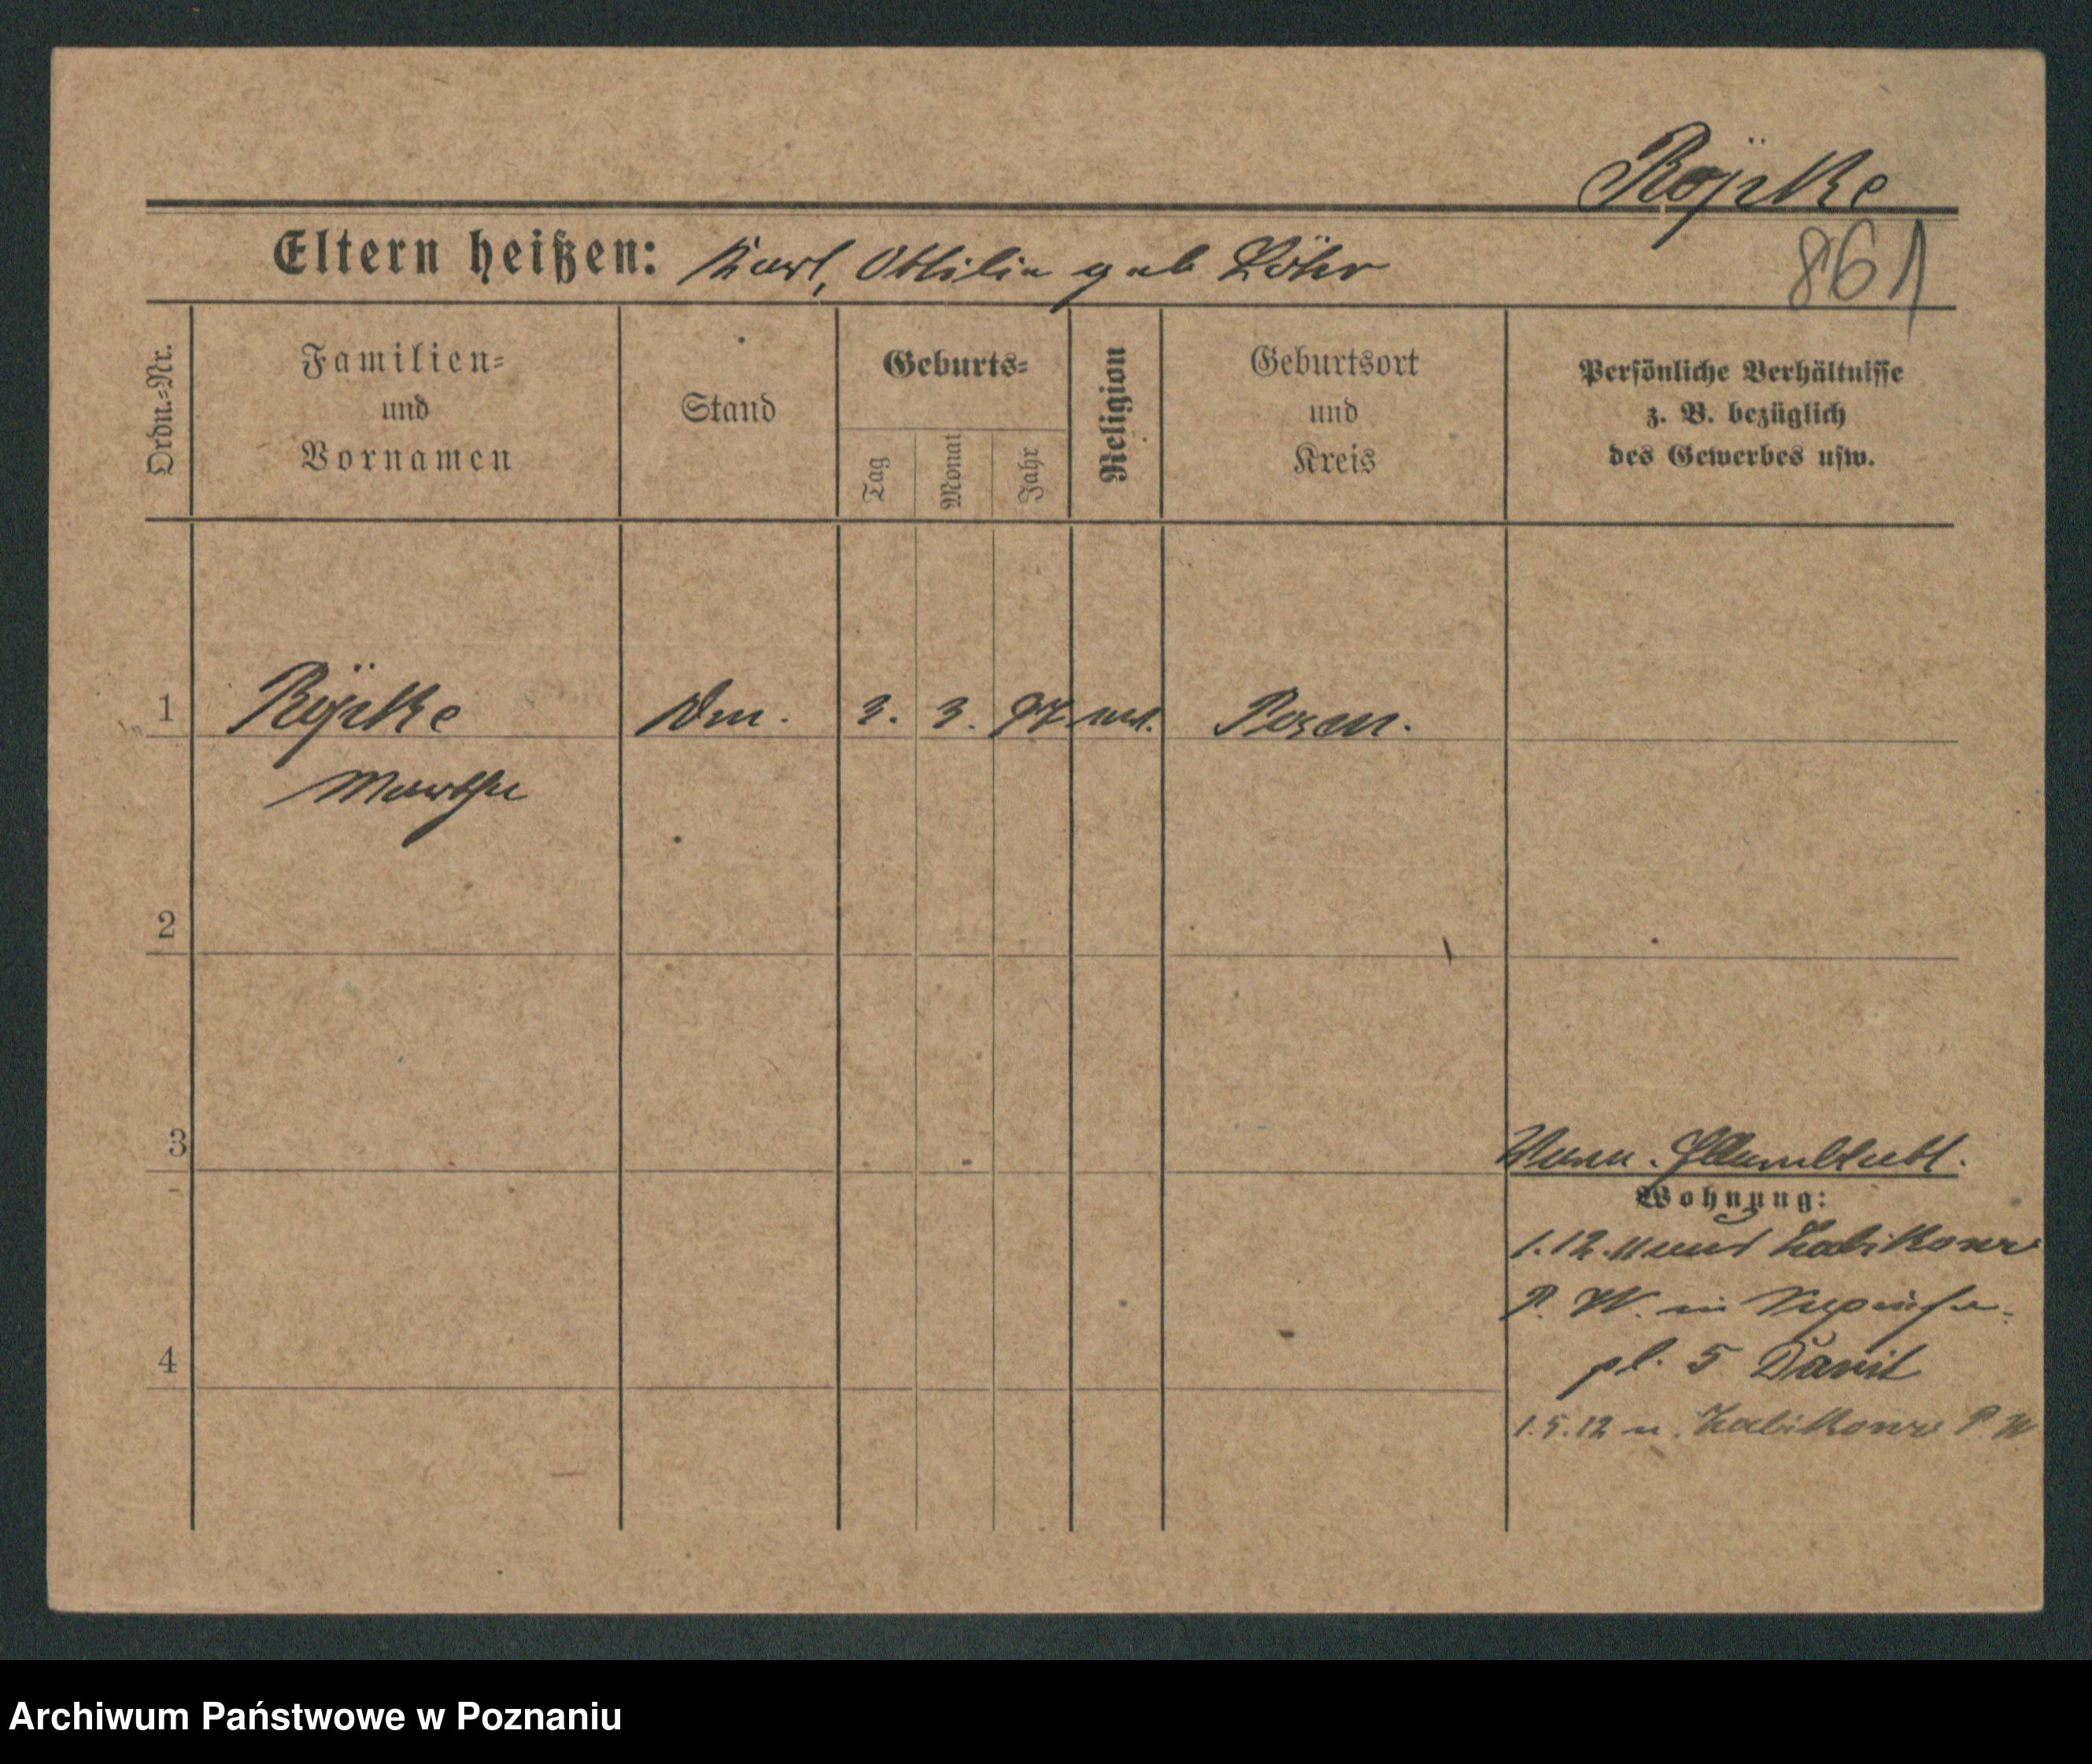 Röpke
861
Eltern heißen: Karl, Ottilie geb Löhr
Ordn.=Nr.
Familien=
und
Vornamen
Stand
Geburts=
Tag
Monat
Jahr
Religion
Geburtsort
und
Kreis
Persönliche Verhältnisse
z. B. bezüglich
des Gewerbes usw.
1 Röpke 3. 3. 97 Posen.
Martha
2
3
Wohnung:
1.12.11 Zabikowo
P. W. in
pl. 5
4
1.5.12 n. Zabikowo P. W
Archiwum Państwowe w Poznaniu